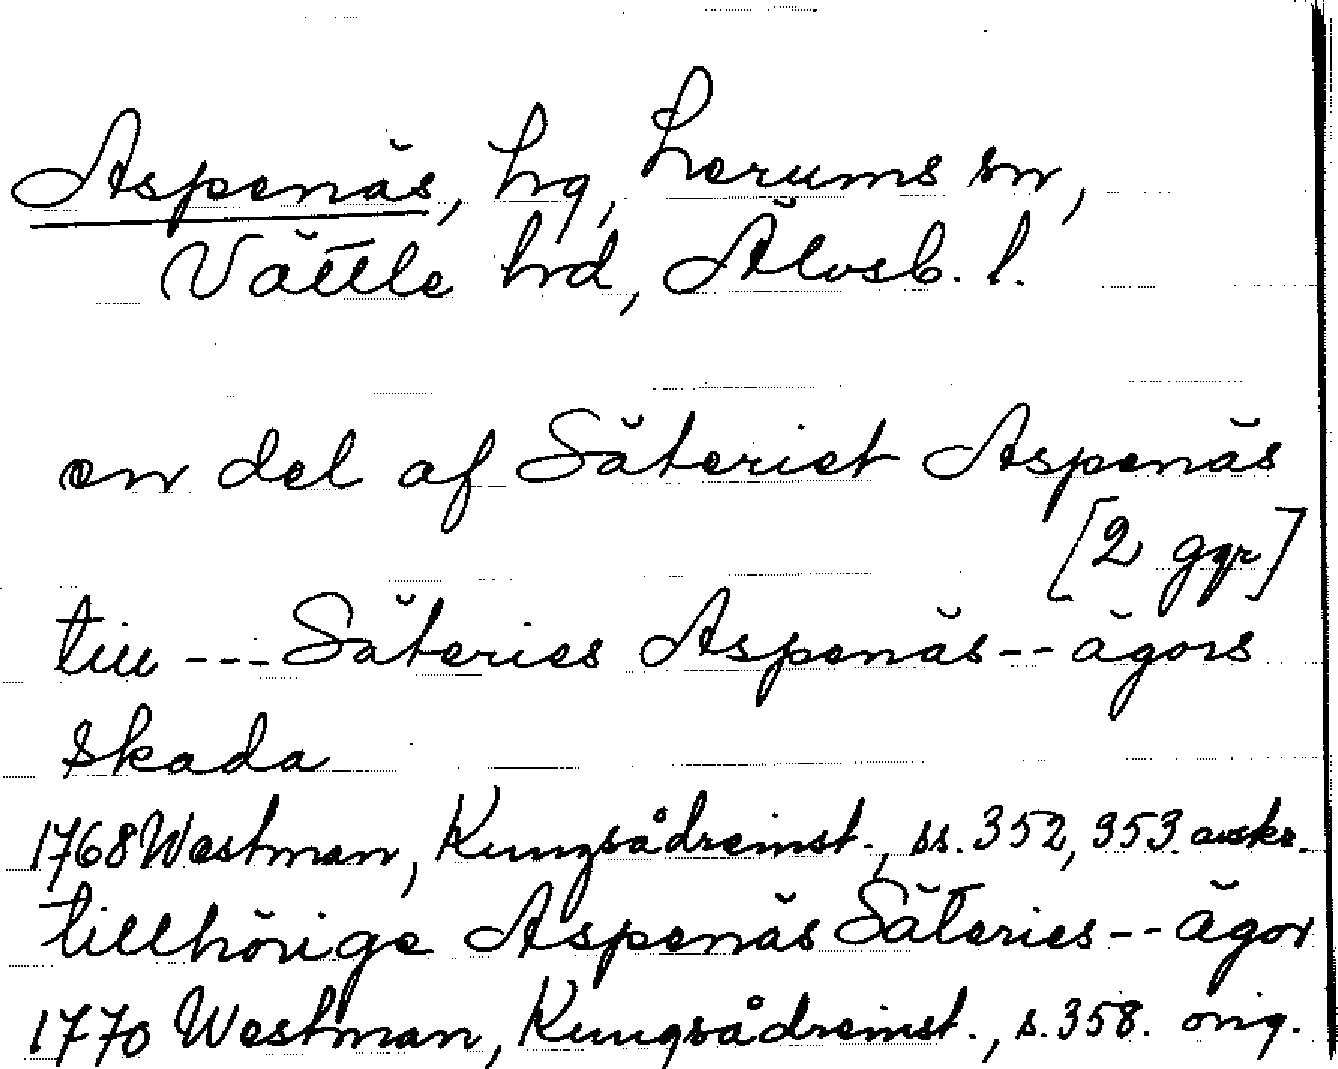 Aspenäs, hg, Lerums sn,
Vättle hrd, Älvsb. l.
en del af Säteriet Aspenäs
[2 ggr]
till --- Säteries Aspenäs -- ägors
skada
1768 Westman, Kungsådreinst., ss. 352, 353. avskr.
tillhörige Aspenäs Säteries -- ägor
1770 Westman, Kungsådreinst., s. 358. orig.